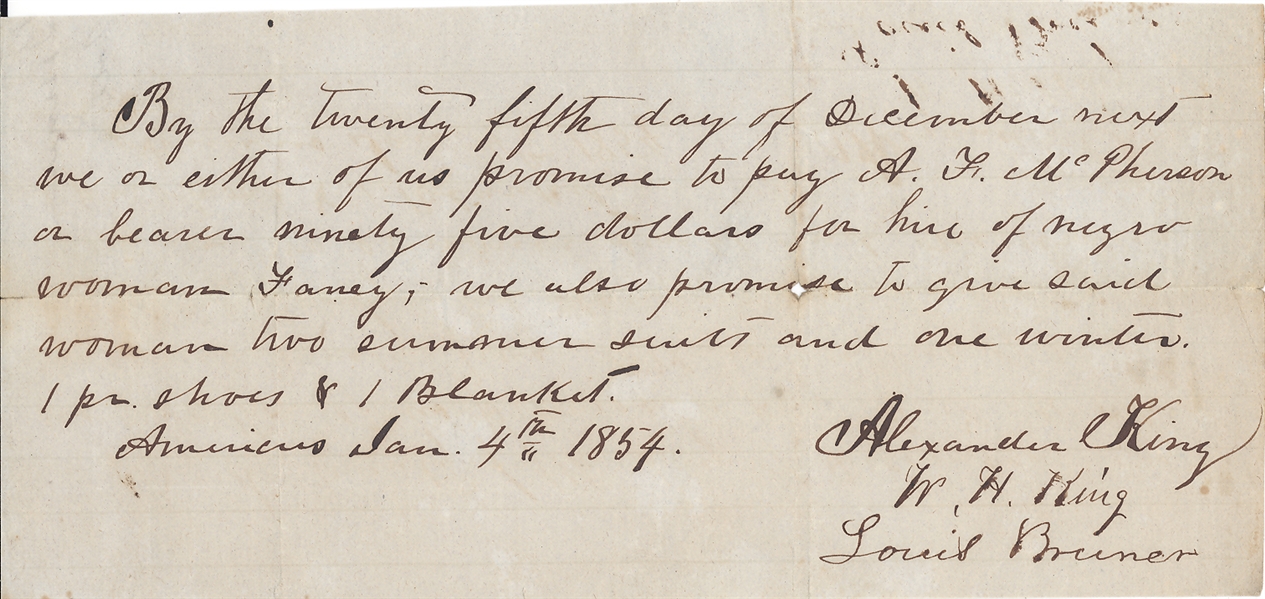 By the twenty fifth day of December next
we or either of us promise to pay A. F. McPherson
or bearer ninety five dollars for hire of negro
woman Fancy; we also promise to give said
woman two summer suits and one winter.
1 pr. shoes & 1 Blanket.
Americus Jan. 4th 1854.
Alexander King
W. H. King
Louis Bruner